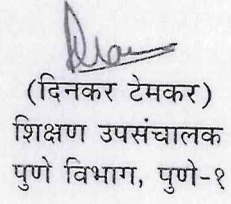 (दिनकर टेमकर)
शिक्षण उपसंचालक
पुणे विभाग, पुणे-१